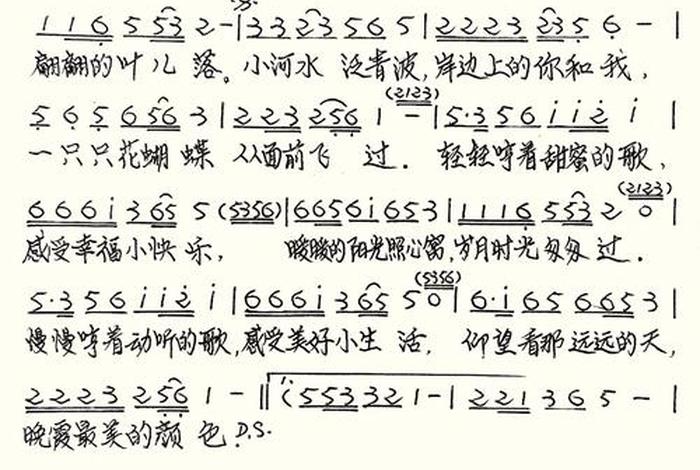 1 1 6 5 5 5 3 2 - | 3 3 2 3 5 6 5 | 2 2 2 3 2 3 5 6 - |
翩翩的叶儿 落。小河水 泛青波,岸边上的你和我,
5 6 5 6 5 6 3 | 2 2 3 2 5 6 1 - (2123) | 5·3 5 6 i i 2 i |
一只只花蝴 蝶 从面前飞 过. 轻轻哼着甜蜜的歌,
6 6 6 i 3 6 5 5 (5356) | 6 6 5 6 i 6 5 3 | 1 1 1 6 5 5 3 2 0 (2123) |
感受幸福小快 乐, 暖暖的阳光照心窝,岁月时光匆匆 过.
5·3 5 6 i i 2 i | 6 6 6 i 3 6 5 5 0 (5356) | 6·i 6 5 6 6 5 3 |
慢慢哼着动听的歌,感受美好小生 活, 仰望着那远远的天,
2 2 2 3 2 5 6 1 - ‖ 1. (5 5 3 3 2 1 - | 2 2 1 3 6 5 - |
晚霞最美的颜 色.D.S.